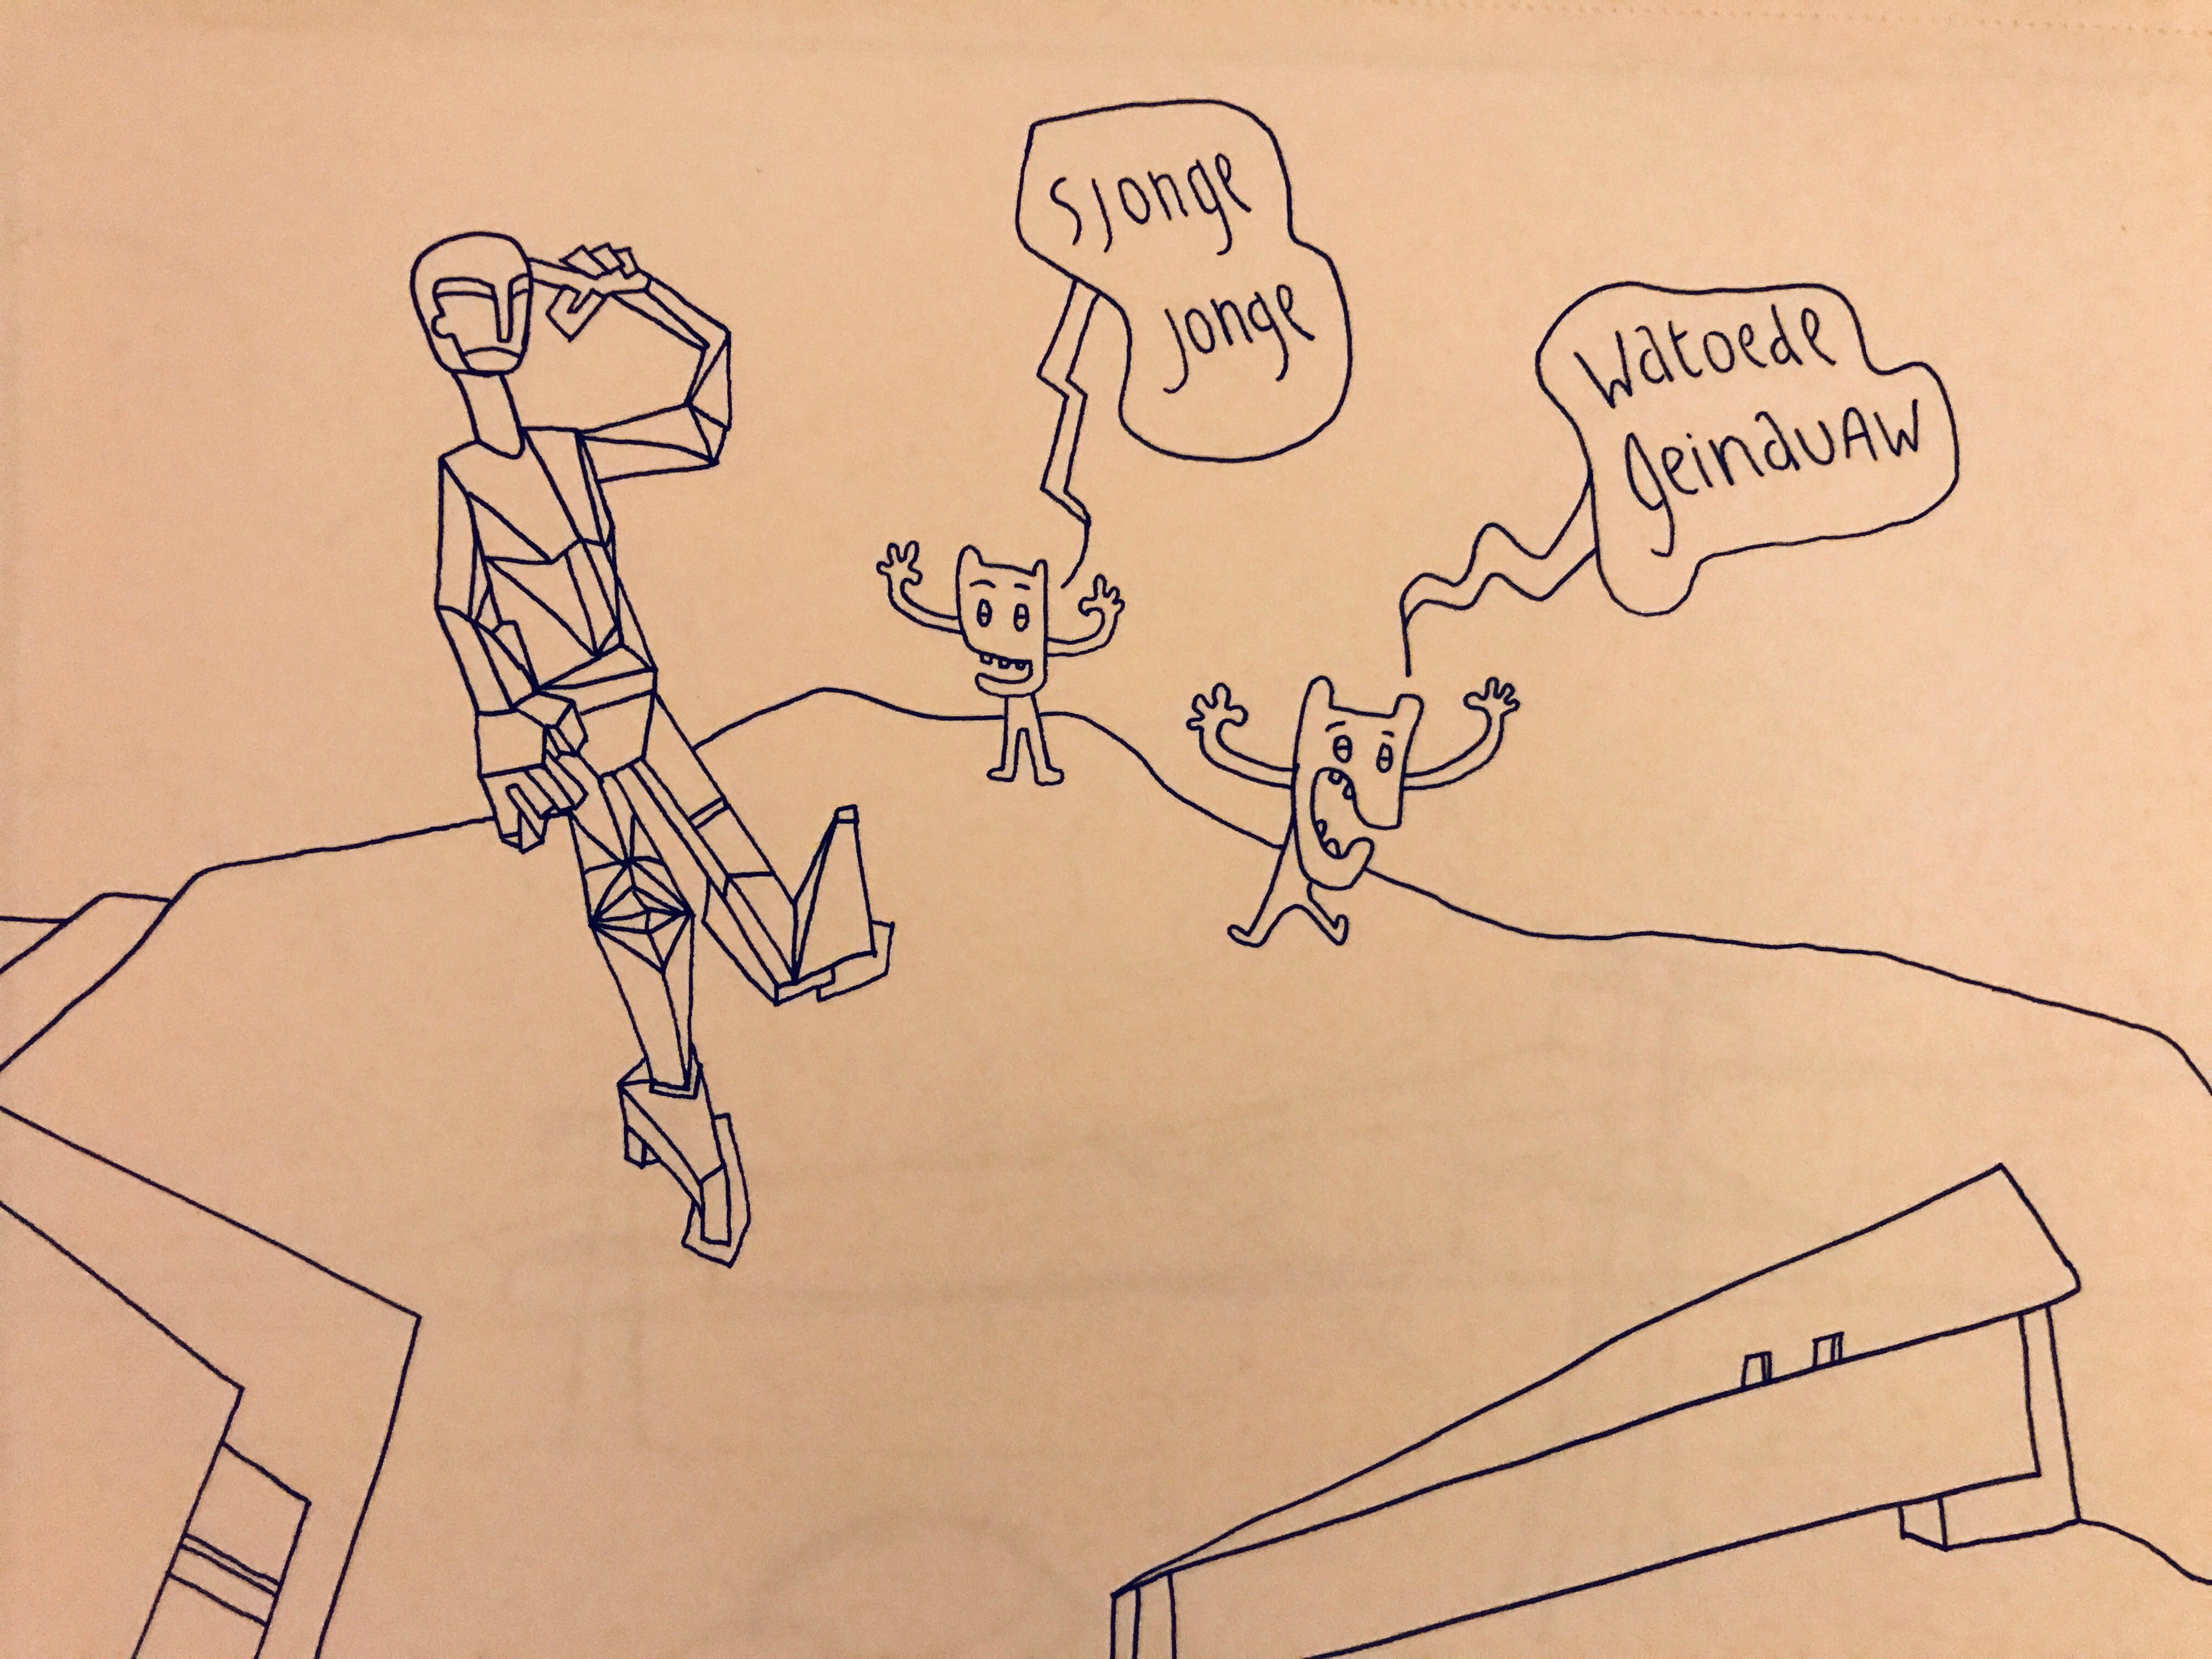 Sjonge
jonge
Watoede
geindUAW